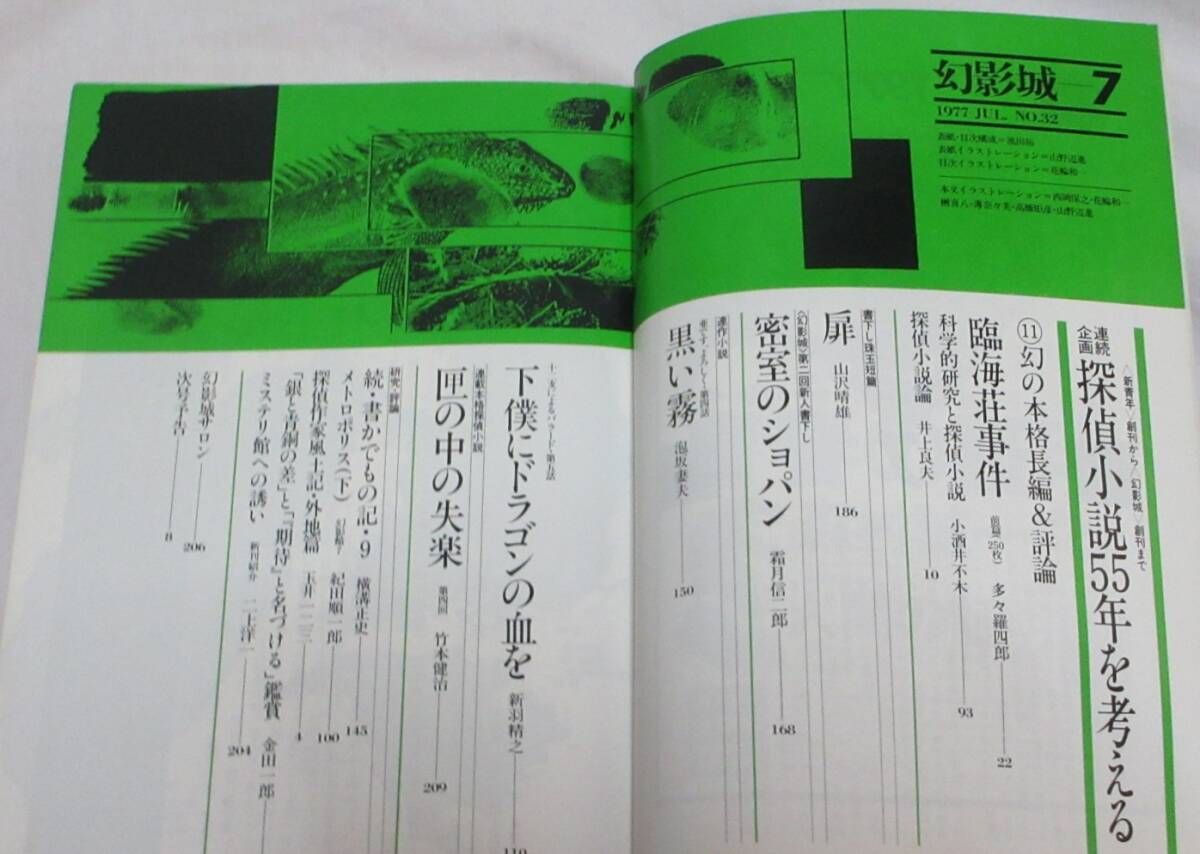 幻影城—7
1977 JUL. NO.32
表紙・目次構成=池田拓
表紙イラストレーション=山野辺進
目次イラストレーション=花輪和一
本文イラストレーション=西岡保之・花輪和一
楢喜八・薄奈々美・高橋恒彦・山野辺進
〈新青年〉創刊から〈幻影城〉創刊まで
連続企画 探偵小説55年を考える
⑪幻の本格長編&評論
臨海荘事件 前篇(250枚) 多々羅四郎 22
科学的研究と探偵小説 小酒井不木 93
探偵小説論 井上良夫 10
書下し珠玉短篇
扉 山沢晴雄 186
〈幻影城〉第二回新人書下し
密室のショパン 霜月信二郎 168
連作小説
亜です、よろしく・第四話
黒い霧 泡坂妻夫 150
十二支によるバラード・第五話
下僕にドラゴンの血を 新羽精之 110
連載本格探偵小説
匣の中の失楽 第四回 竹本健治 209
研究・評論
続・書かでもの記・9 横溝正史 145
メトロポリス(下) 幻影館7 紀田順一郎 100
探偵作家風土記・外地篇 玉井一二三 4
「銀と青銅の差」と「『期待』と名づける」鑑賞 金田一郎
ミステリ館への誘い 新刊紹介 二上洋一 204
幻影城サロン 206
次号予告 8